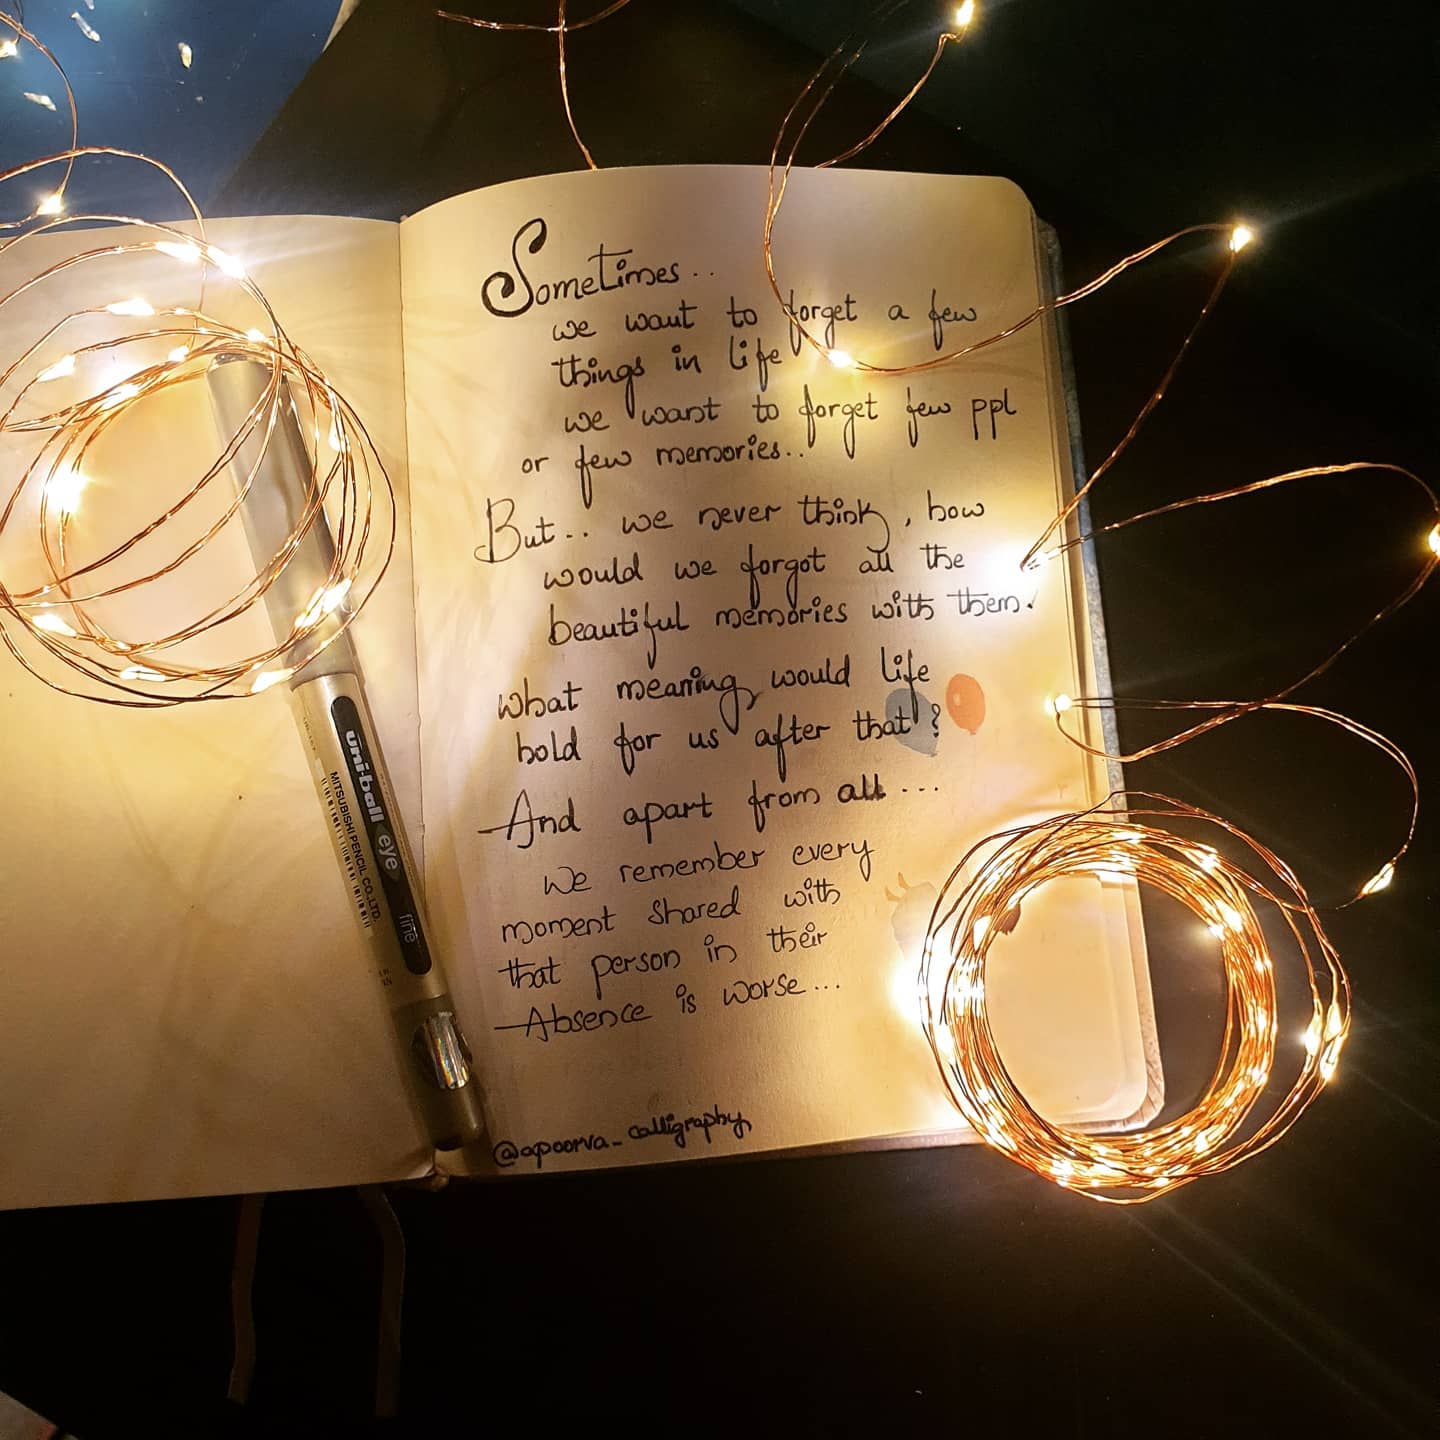 Sometimes..
we want to forget a few
things in life
we want to forget few ppl
or few memories..
But.. we never think, how
would we forgot all the
beautiful memories with them.
what meaning would life
hold for us after that?
And apart from all...
We remember every
moment shared with
that person in their
Absence is worse...
@apoorva_calligraphy
uni-ball eye fine
MITSUBISHI PENCIL CO., LTD.